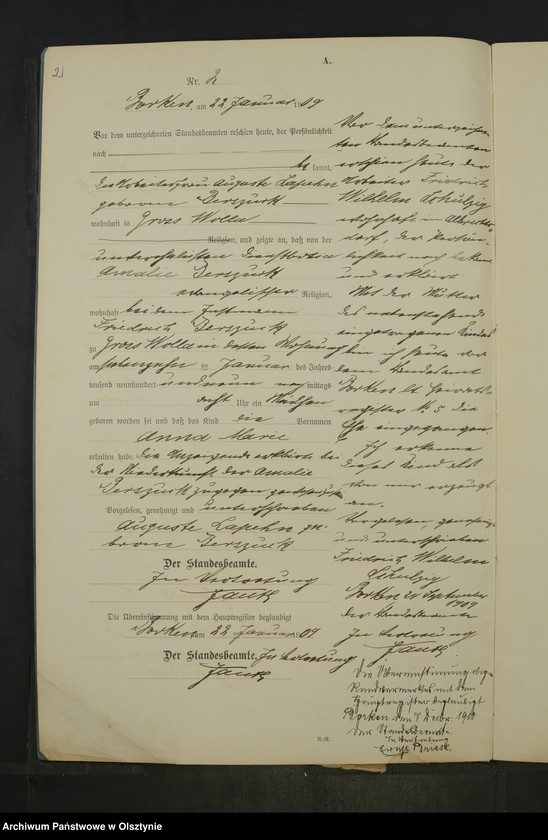 2)
A.
Nr. 2
Borken, am 22 Januar 1909
Vor dem unterzeichneten Standesbeamten erschien heute, der Persönlichkeit
nach
be kannt,
die Arbeiterfrau Auguste Lapehn
geborene Derszurk
wohnhaft in Gross Wolla
Religion, und zeigte an, daß von der
unverehelichten Dienstbotin
Amalie Derszurk
evangelischer Religion,
wohnhaft bei dem
Friedrich Derszurk
zu Gross Wolla in dessen Wohnung
am siebenzehn ten Januar des Jahres
tausend neunhundert und neun nach mittags
um acht Uhr ein Mädchen
geboren worden sei und daß das Kind die Vornamen
Anna Marie
erhalten habe. Die Anzeigende erklärte bei
der Niederkunft der Amalie
Derszurk zugegen gewesen zu sein
Vorgelesen, genehmigt und unterschrieben
Auguste Lapehn ge-
borene Derszurk
Der Standesbeamte.
In Vertretung
Die Übereinstimmung mit dem Hauptregister beglaubigt
Borken, am 22 Januar 1909
Der Standesbeamte. In Vertretung
Vor dem unterzeichne-
ten Standesbeamten
erschien heute der
Arbeiter Friedrich
Wilhelm Schulzig
wohnhaft in Albrechts-
dorf, der Persön-
lichkeit nach bekannt
und erklärt:
Mit der Mutter
des nebenstehend
eingetragenen Kindes
bin ich heute vor
dem Standesamt
Borken lt Heirats-
register № 5 die
Ehe eingegangen.
Ich erkenne
dieses Kind als
von mir erzeugt
an.
Vorgelesen, genehmigt
und unterschrieben
Friedrich Wilhelm
Schulzig
Borken September
1909
der Standesbeamte
In Vertretung
Die Übereinstimmung des
Randvermerkes mit dem
Hauptregister beglaubigt
Borken den 7 1910
Der Standesbeamte
In Vertretung
Archiwum Państwowe w Olsztynie